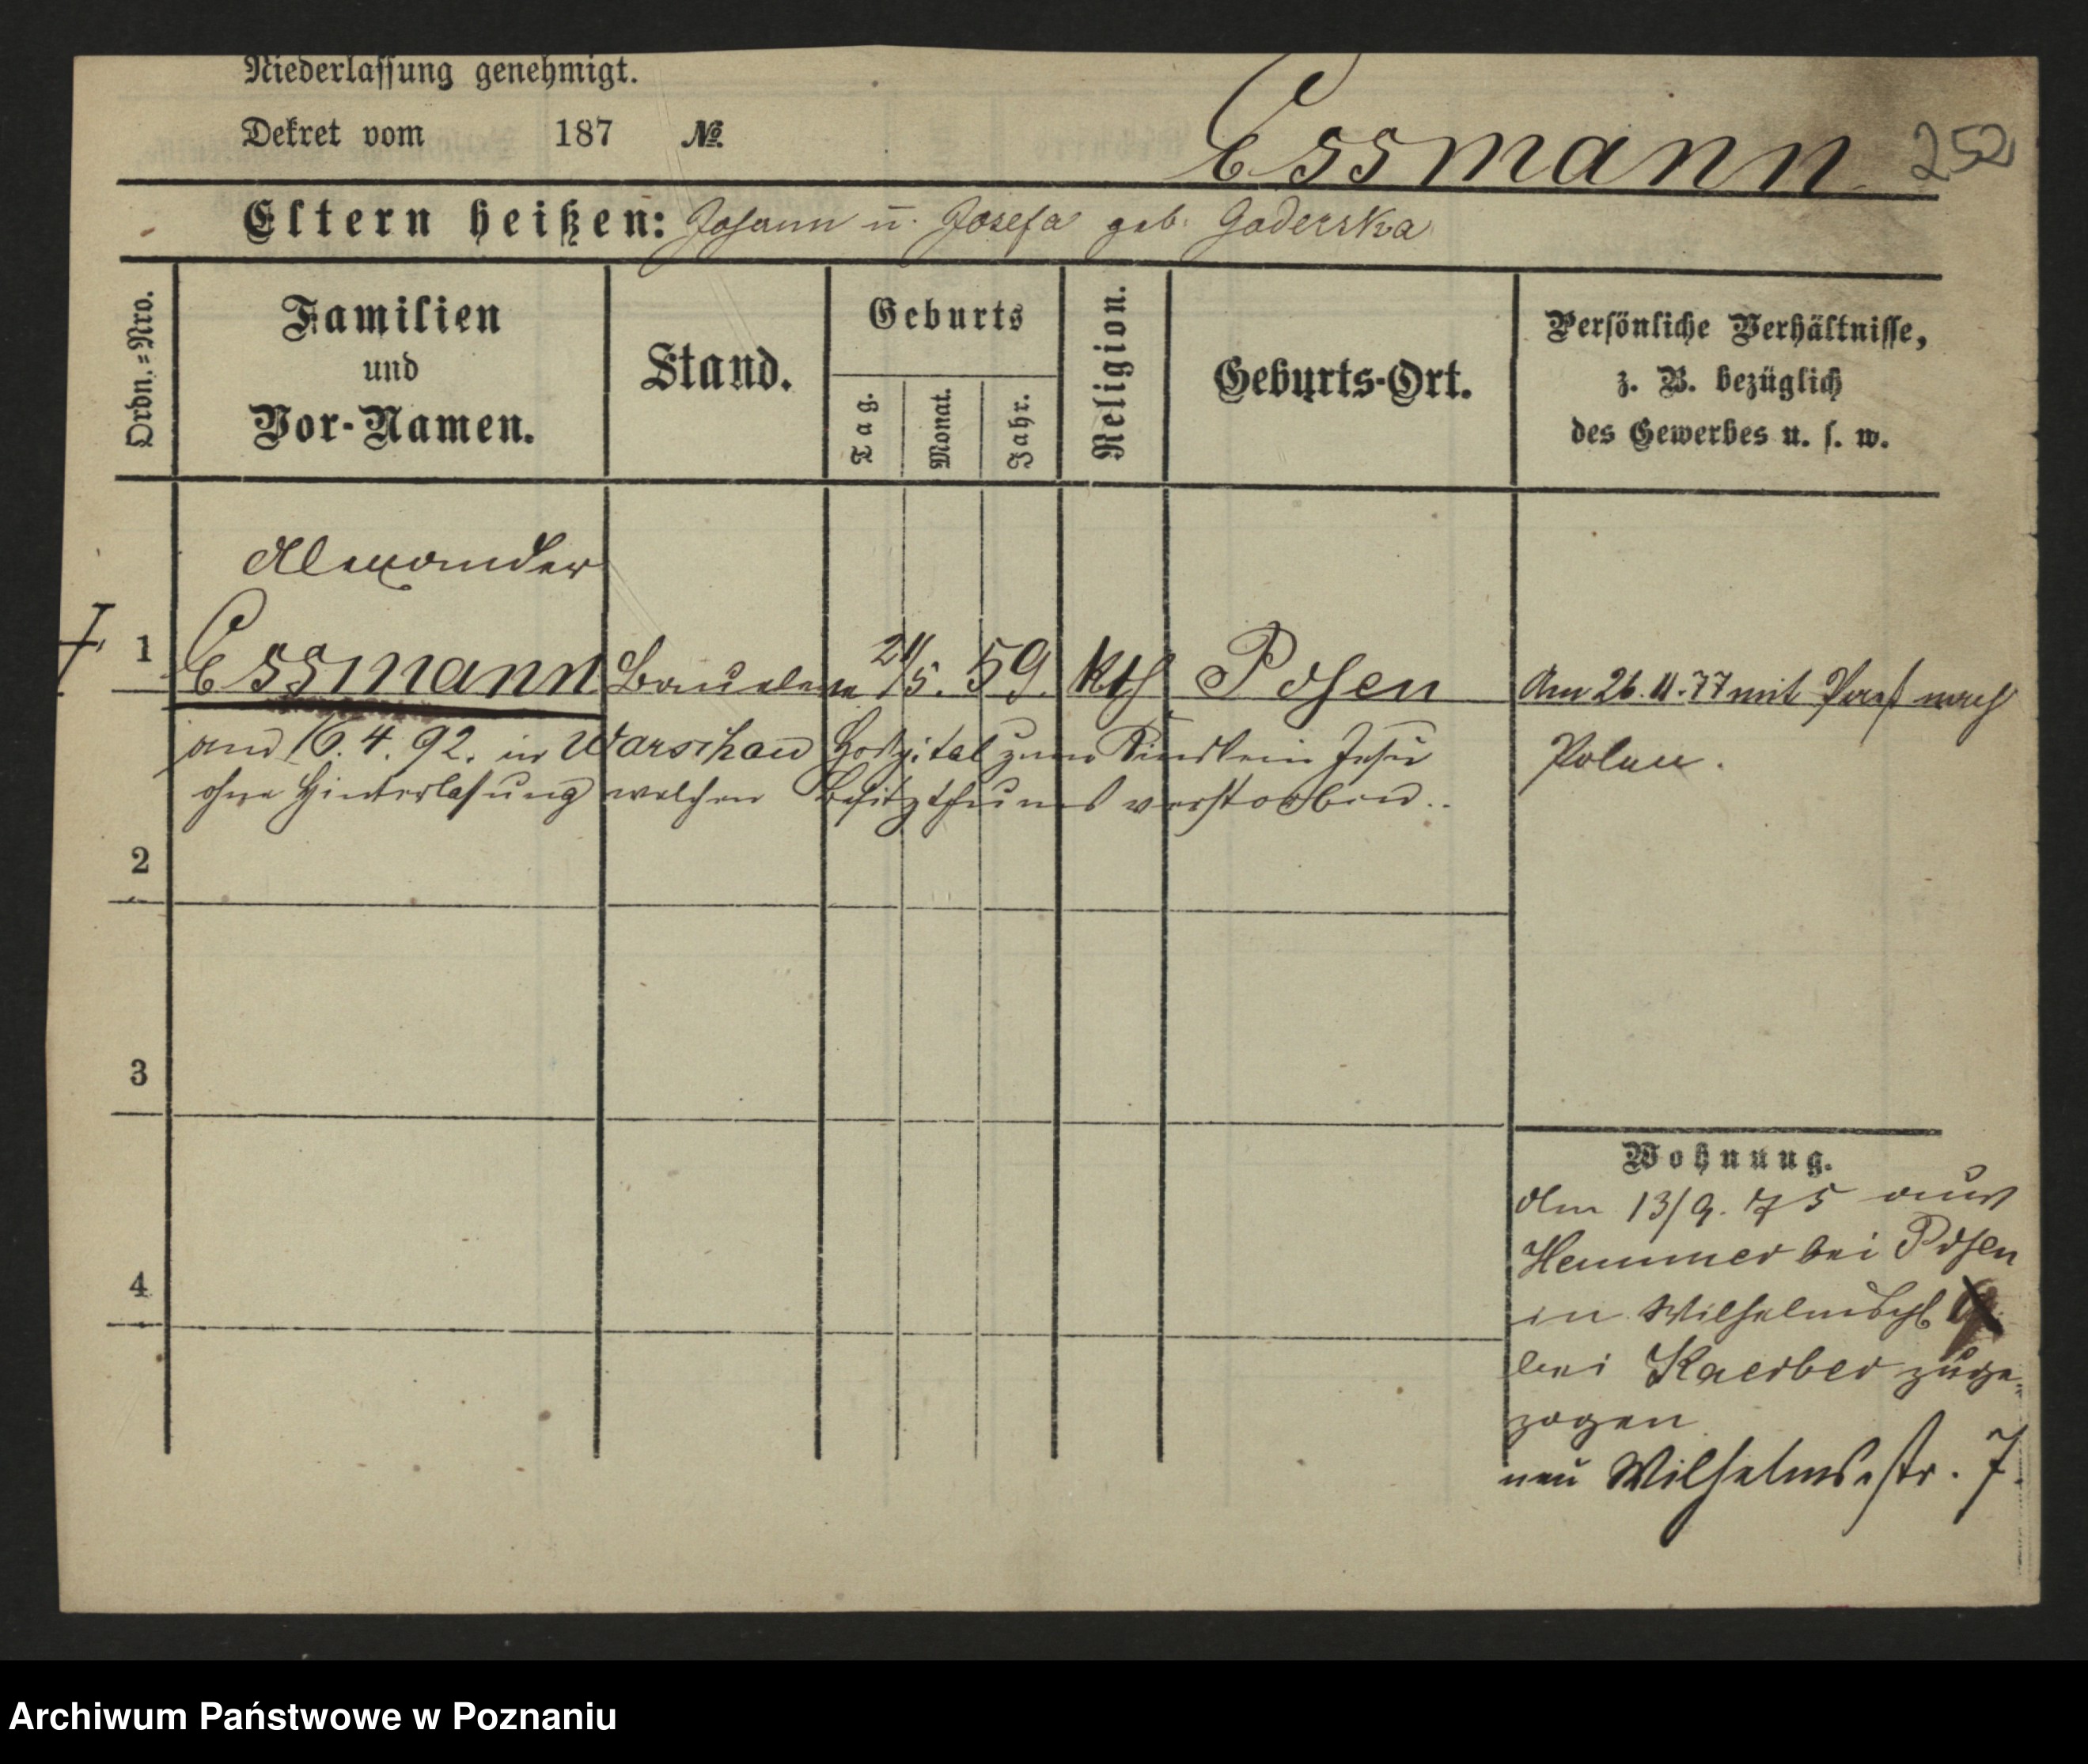 Niederlassung genehmigt.
Dekret vom 187 №
Essmann
252
Eltern heißen: Johann u. Josefa geb. Goderska
Ordn.=Nro.
Familien
und
Vor-Namen.
Stand.
Geburts
Tag.
Monat.
Jahr.
Religion.
Geburts-Ort.
Persönliche Verhältnisse,
z. B. bezüglich
des Gewerbes u. s. w.
Alexander
1 Essmann 59. kth Posen Am 26.11.77 mit nach
Polen.
am 16.4.92. in Warschau Hospital zum Kindlein Jesu
ohne Hinterlaßung welchen Besitzthums verstorben..
2
3
4
Wohnung.
Am 13/9.75 aus
bei Posen
in
bei Kaerber zuge-
zogen
neu Wilhelmsstr. 7.
Archiwum Państwowe w Poznaniu